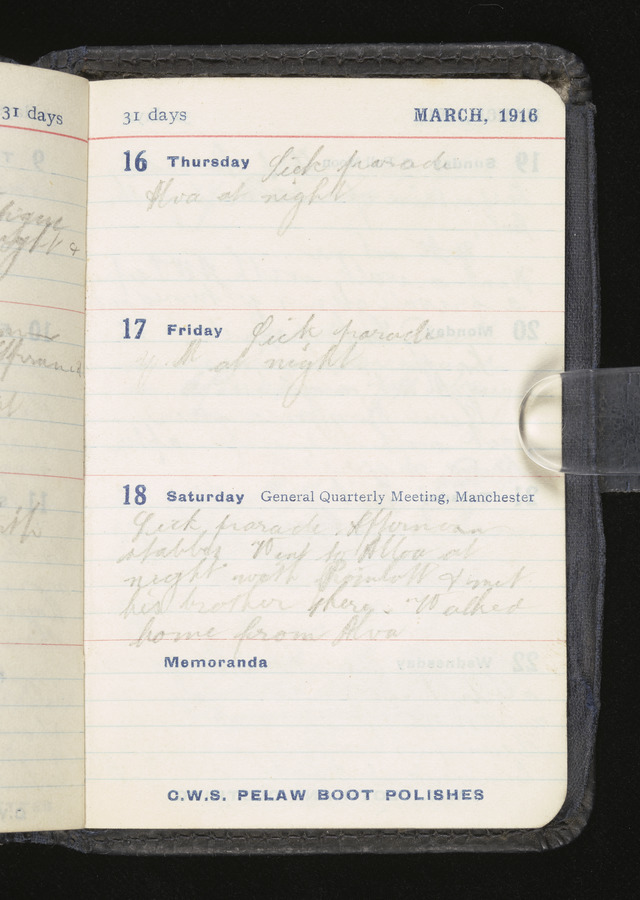 31 days
31 days MARCH, 1916
16 Thursday Sick parade
Alva at night
17 Friday Sick parade
at night
18 Saturday General Quarterly Meeting, Manchester
Sick parade. Afternoon
stables Went to Alloa at
night with & met
his brother there. Walked
home from Alva
Memoranda
C.W.S. PELAW BOOT POLISHES